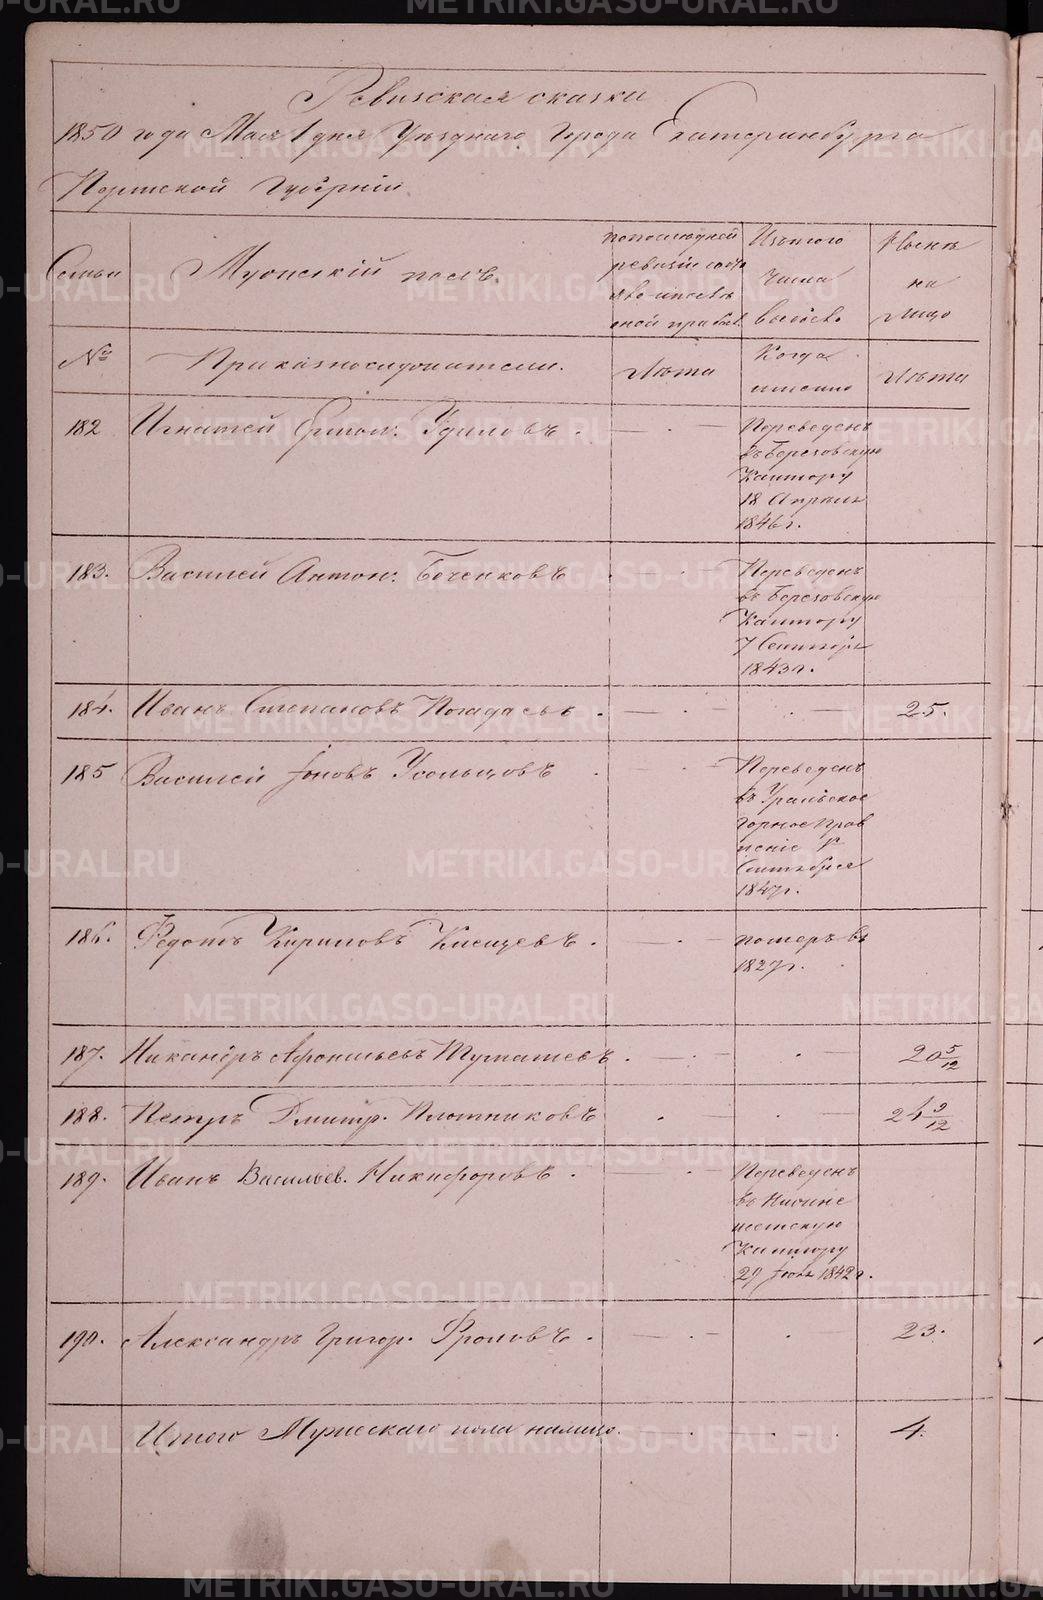 Ревизская сказка
1850 года Мая 1 дня Уѣзднаго Города Екатеринбурга
Пермской Губерніи.
Семьи
Мужескій полъ.
по последней
ревизіи состо
яло и послѣ
оной прибыло
Изъ того
числа
выбыло
Нынѣ
на
лицо
№
Приказнослужители.
Лѣта
Когда
именно
Лѣта
182 Игнатей Ермол. Удиловъ.
Переведенъ
въ Березовскую
Кантору
18 Апрѣля
1846 г.
183. Василей Антон. Боченковъ
Переведенъ
въ Березовскую
Кантору
7 Сентября
1843 г.
184. Иванъ Степановъ
25.
185 Василей Іоновъ Усольцовъ
Переведенъ
въ Уральское
Горное Прав
леніе
Сентября
1847 г.
186. Федотъ Кириловъ
померъ въ
1827 г.
187. Никаноръ Афонасьевъ Тумашевъ.
20 5/12
188. Петръ Дмитр. Плотниковъ
24 9/12
189. Иванъ Васильев. Никифоровъ.
Переведенъ
въ Нижне
исетскую
Кантору
29 Іюня 1842 г.
190. Александръ Григор. Фроловъ.
23.
Итого Мужескаго пола налицо.
4.
METRIKI.GASO-URAL.RU